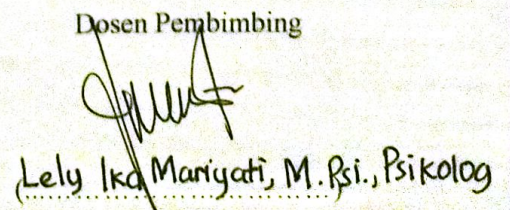 Dosen Pembimbing
(Lely Ika Mariyati, M.Psi., Psikolog